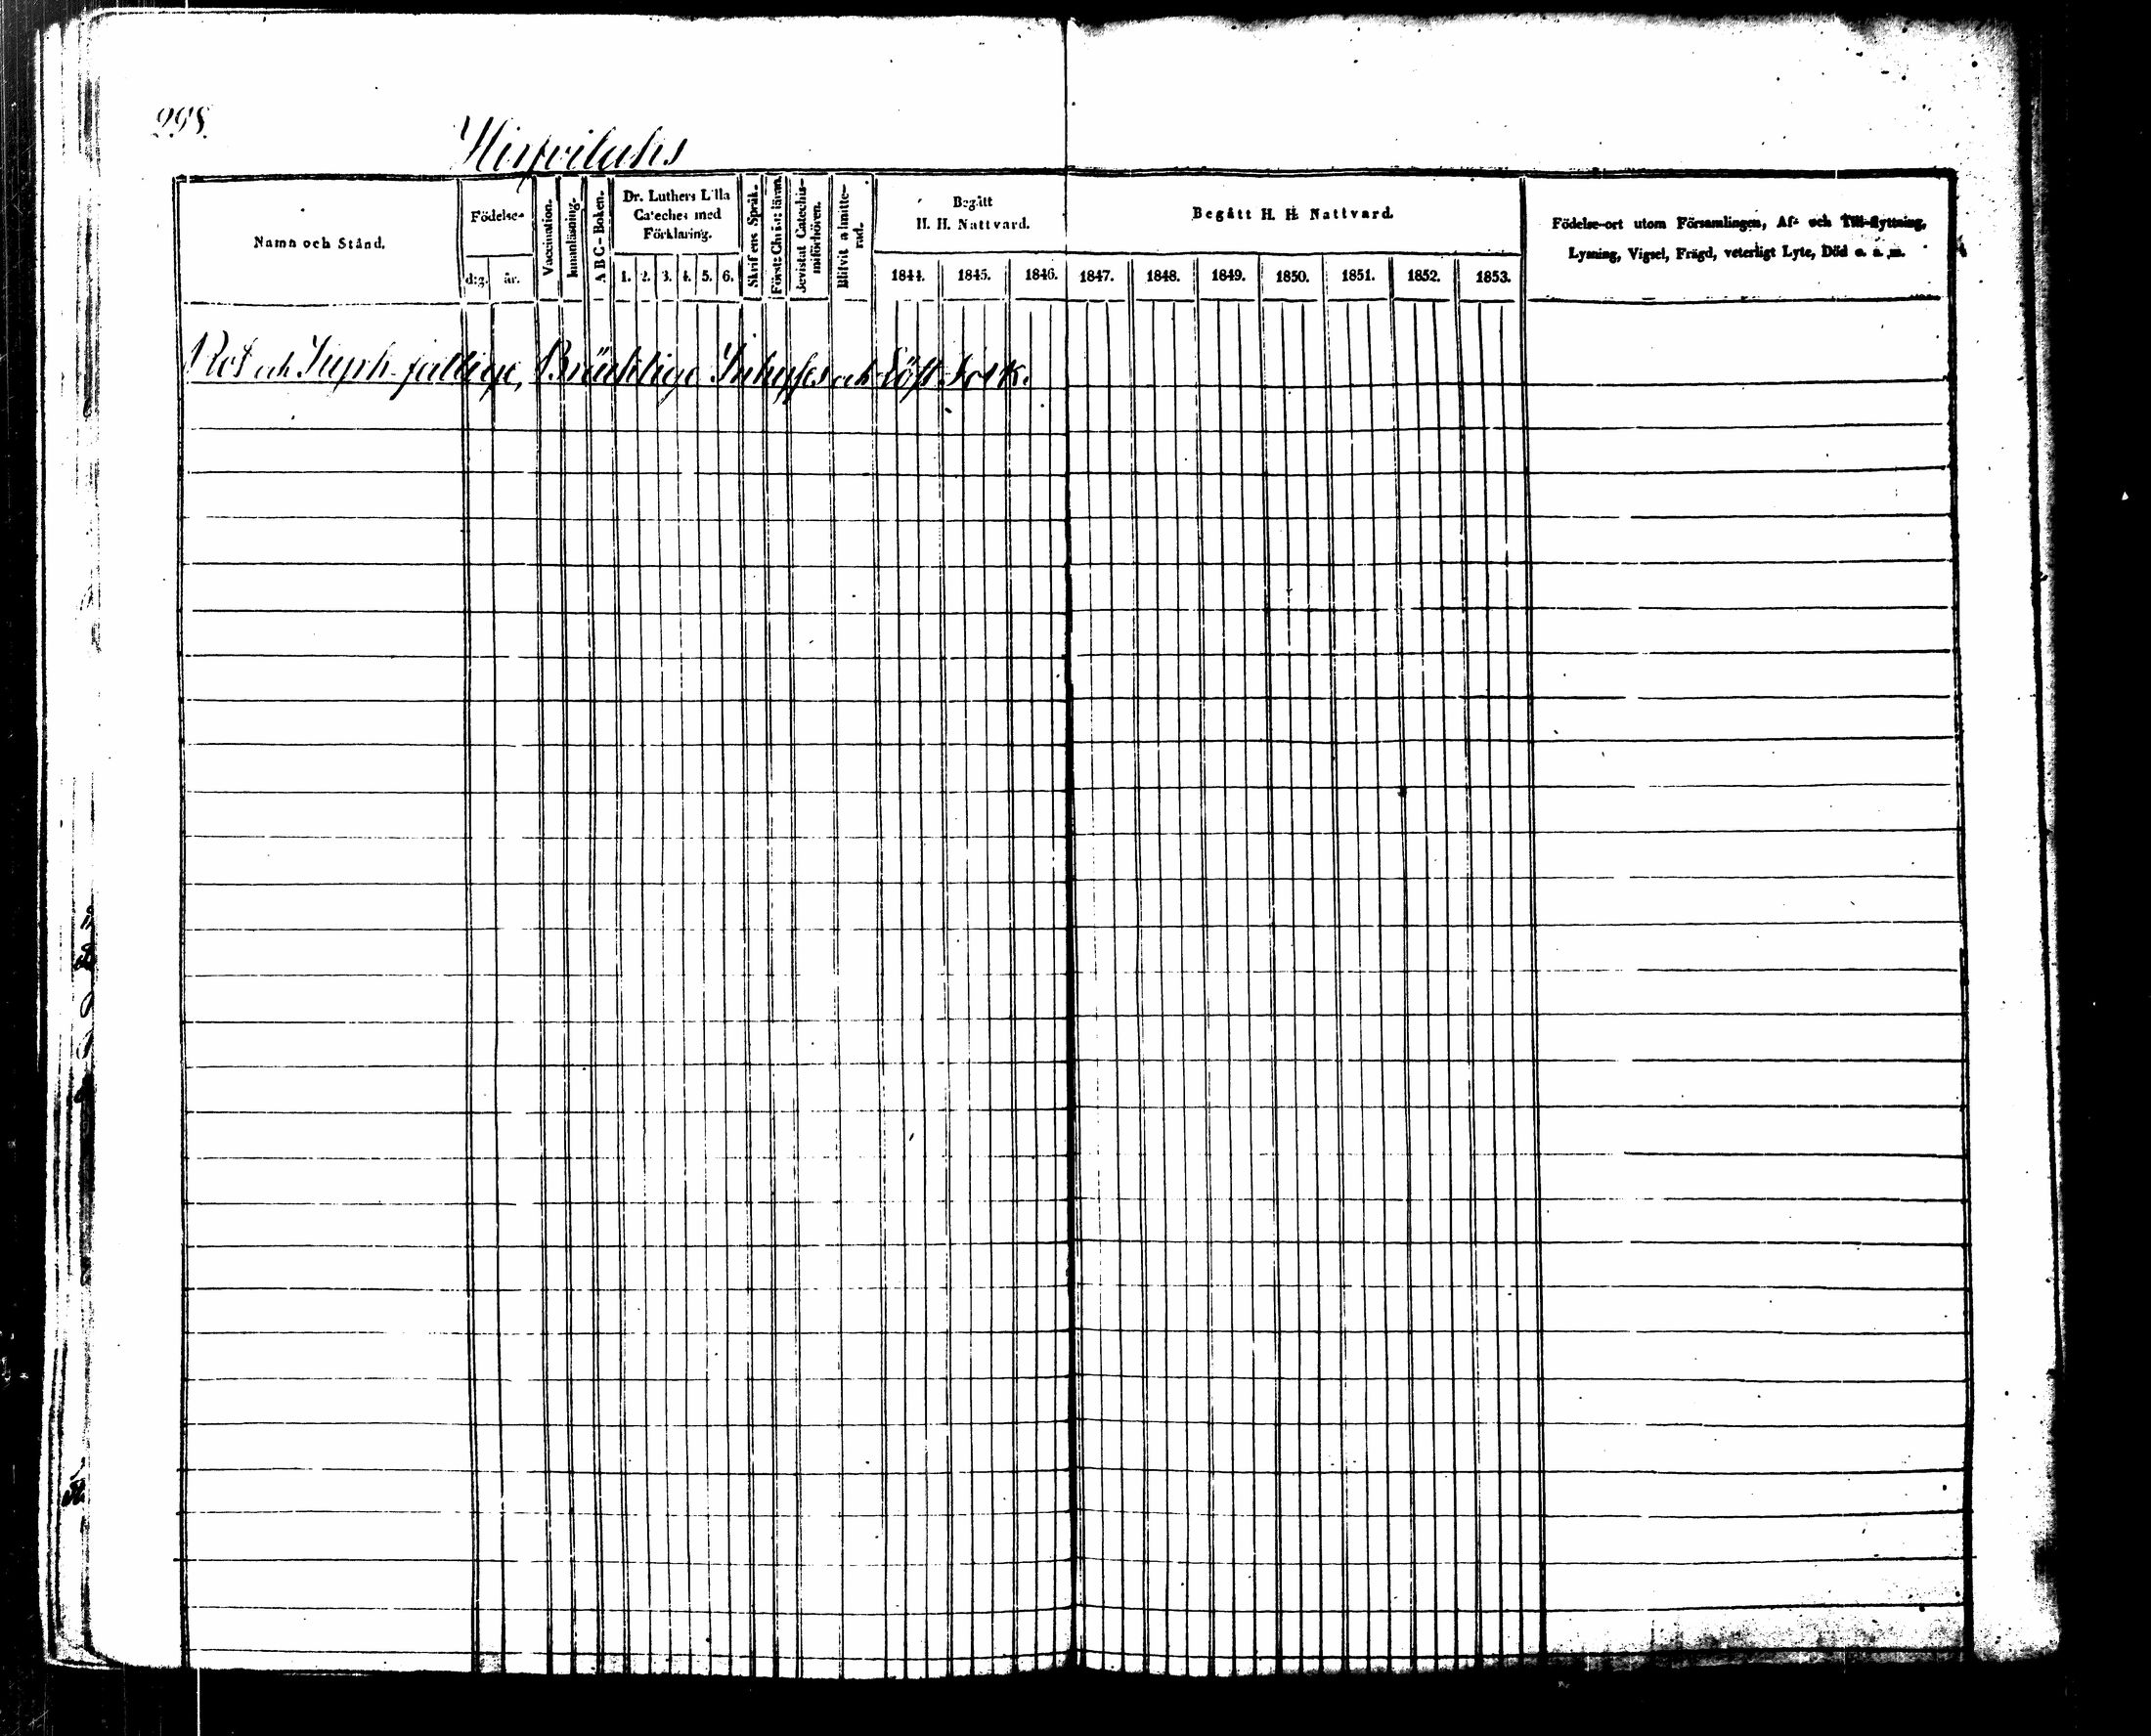 298.
Hirfvilahs
Namn och Stånd.
Födelse-
d:g. år.
Vaccination.
Innanläsning.
A B C - Boken.
Dr. Luthers Lilla
Cateches med
Förklaring.
1. 2. 3. 4. 5. 6.
Skriftens Språk.
Först: Christ: läran.
Bevistat Catechis-
miförhören.
Blifvit admitte-
rad.
Begått
H. H. Nattvard.
1844. 1845. 1846.
Begått H. H. Nattvard.
1847. 1848. 1849. 1850. 1851. 1852. 1853.
Födelse-ort utom Församlingen, Af- och Till-flyttning,
Lysning, Vigsel, Frägd, veterligt Lyte, Död o. s. m.
Rot och fattige, Bräcklige Inhyses och Löst-Folk.